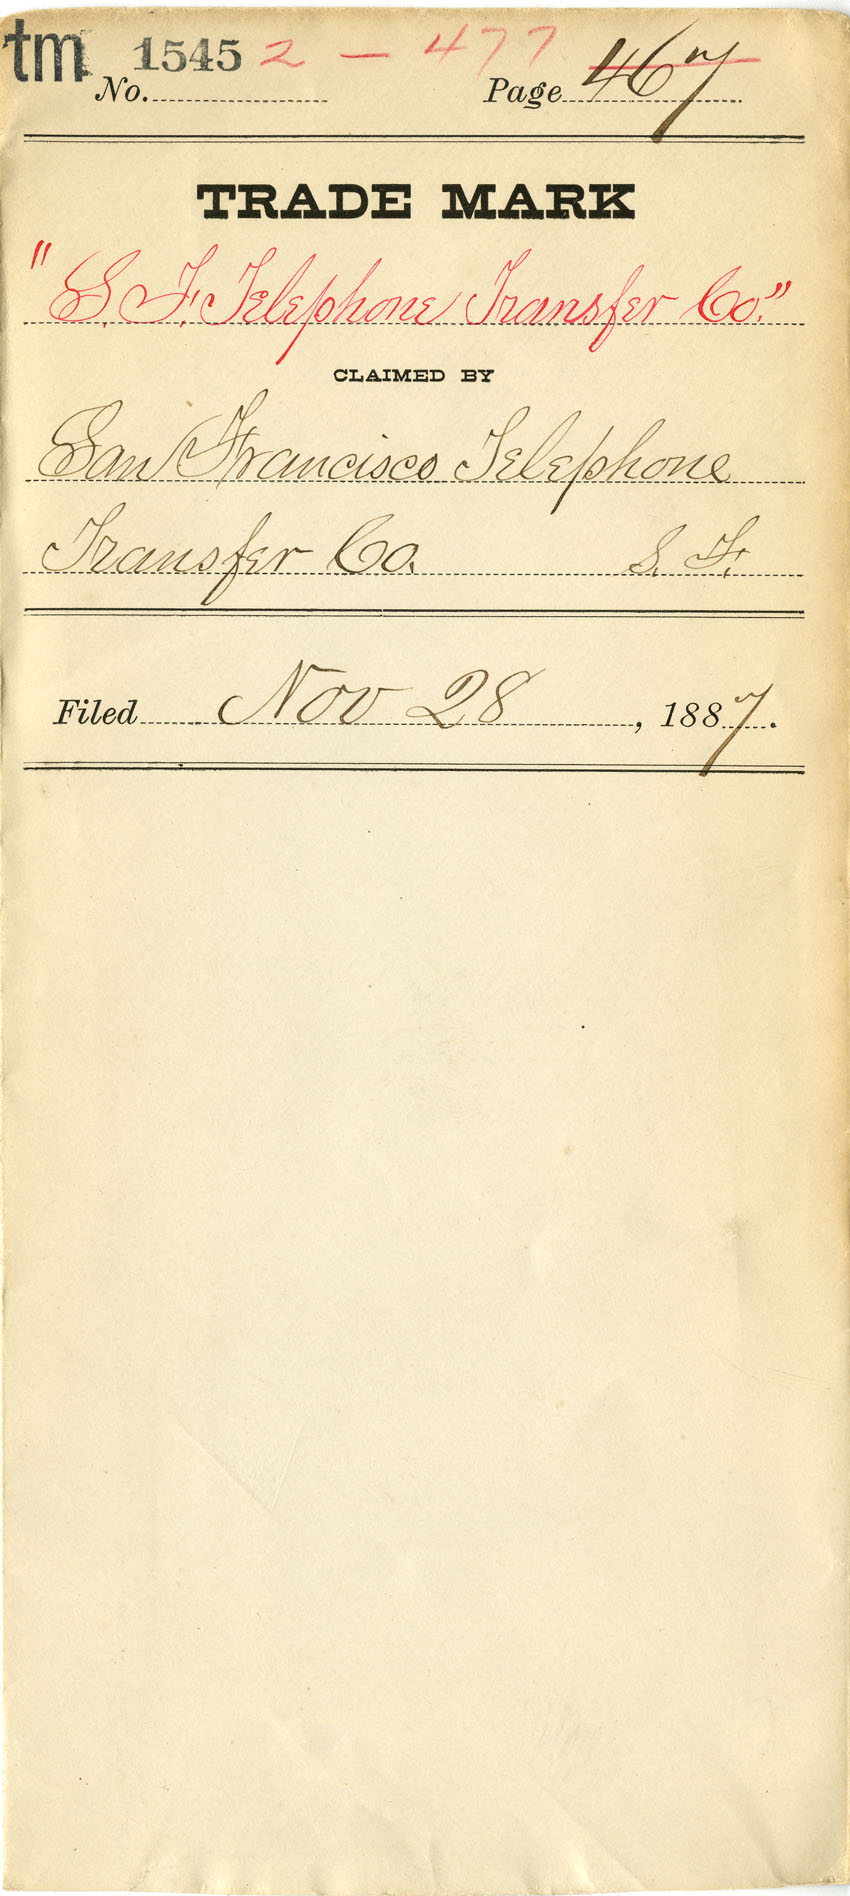 tm 1545 2 — 477
No. Page 467
TRADE MARK
"S. F. Telephone Transfer Co."
CLAIMED BY
San Francisco Telephone
Transfer Co. S. F.
Filed Nov 28, 1887.